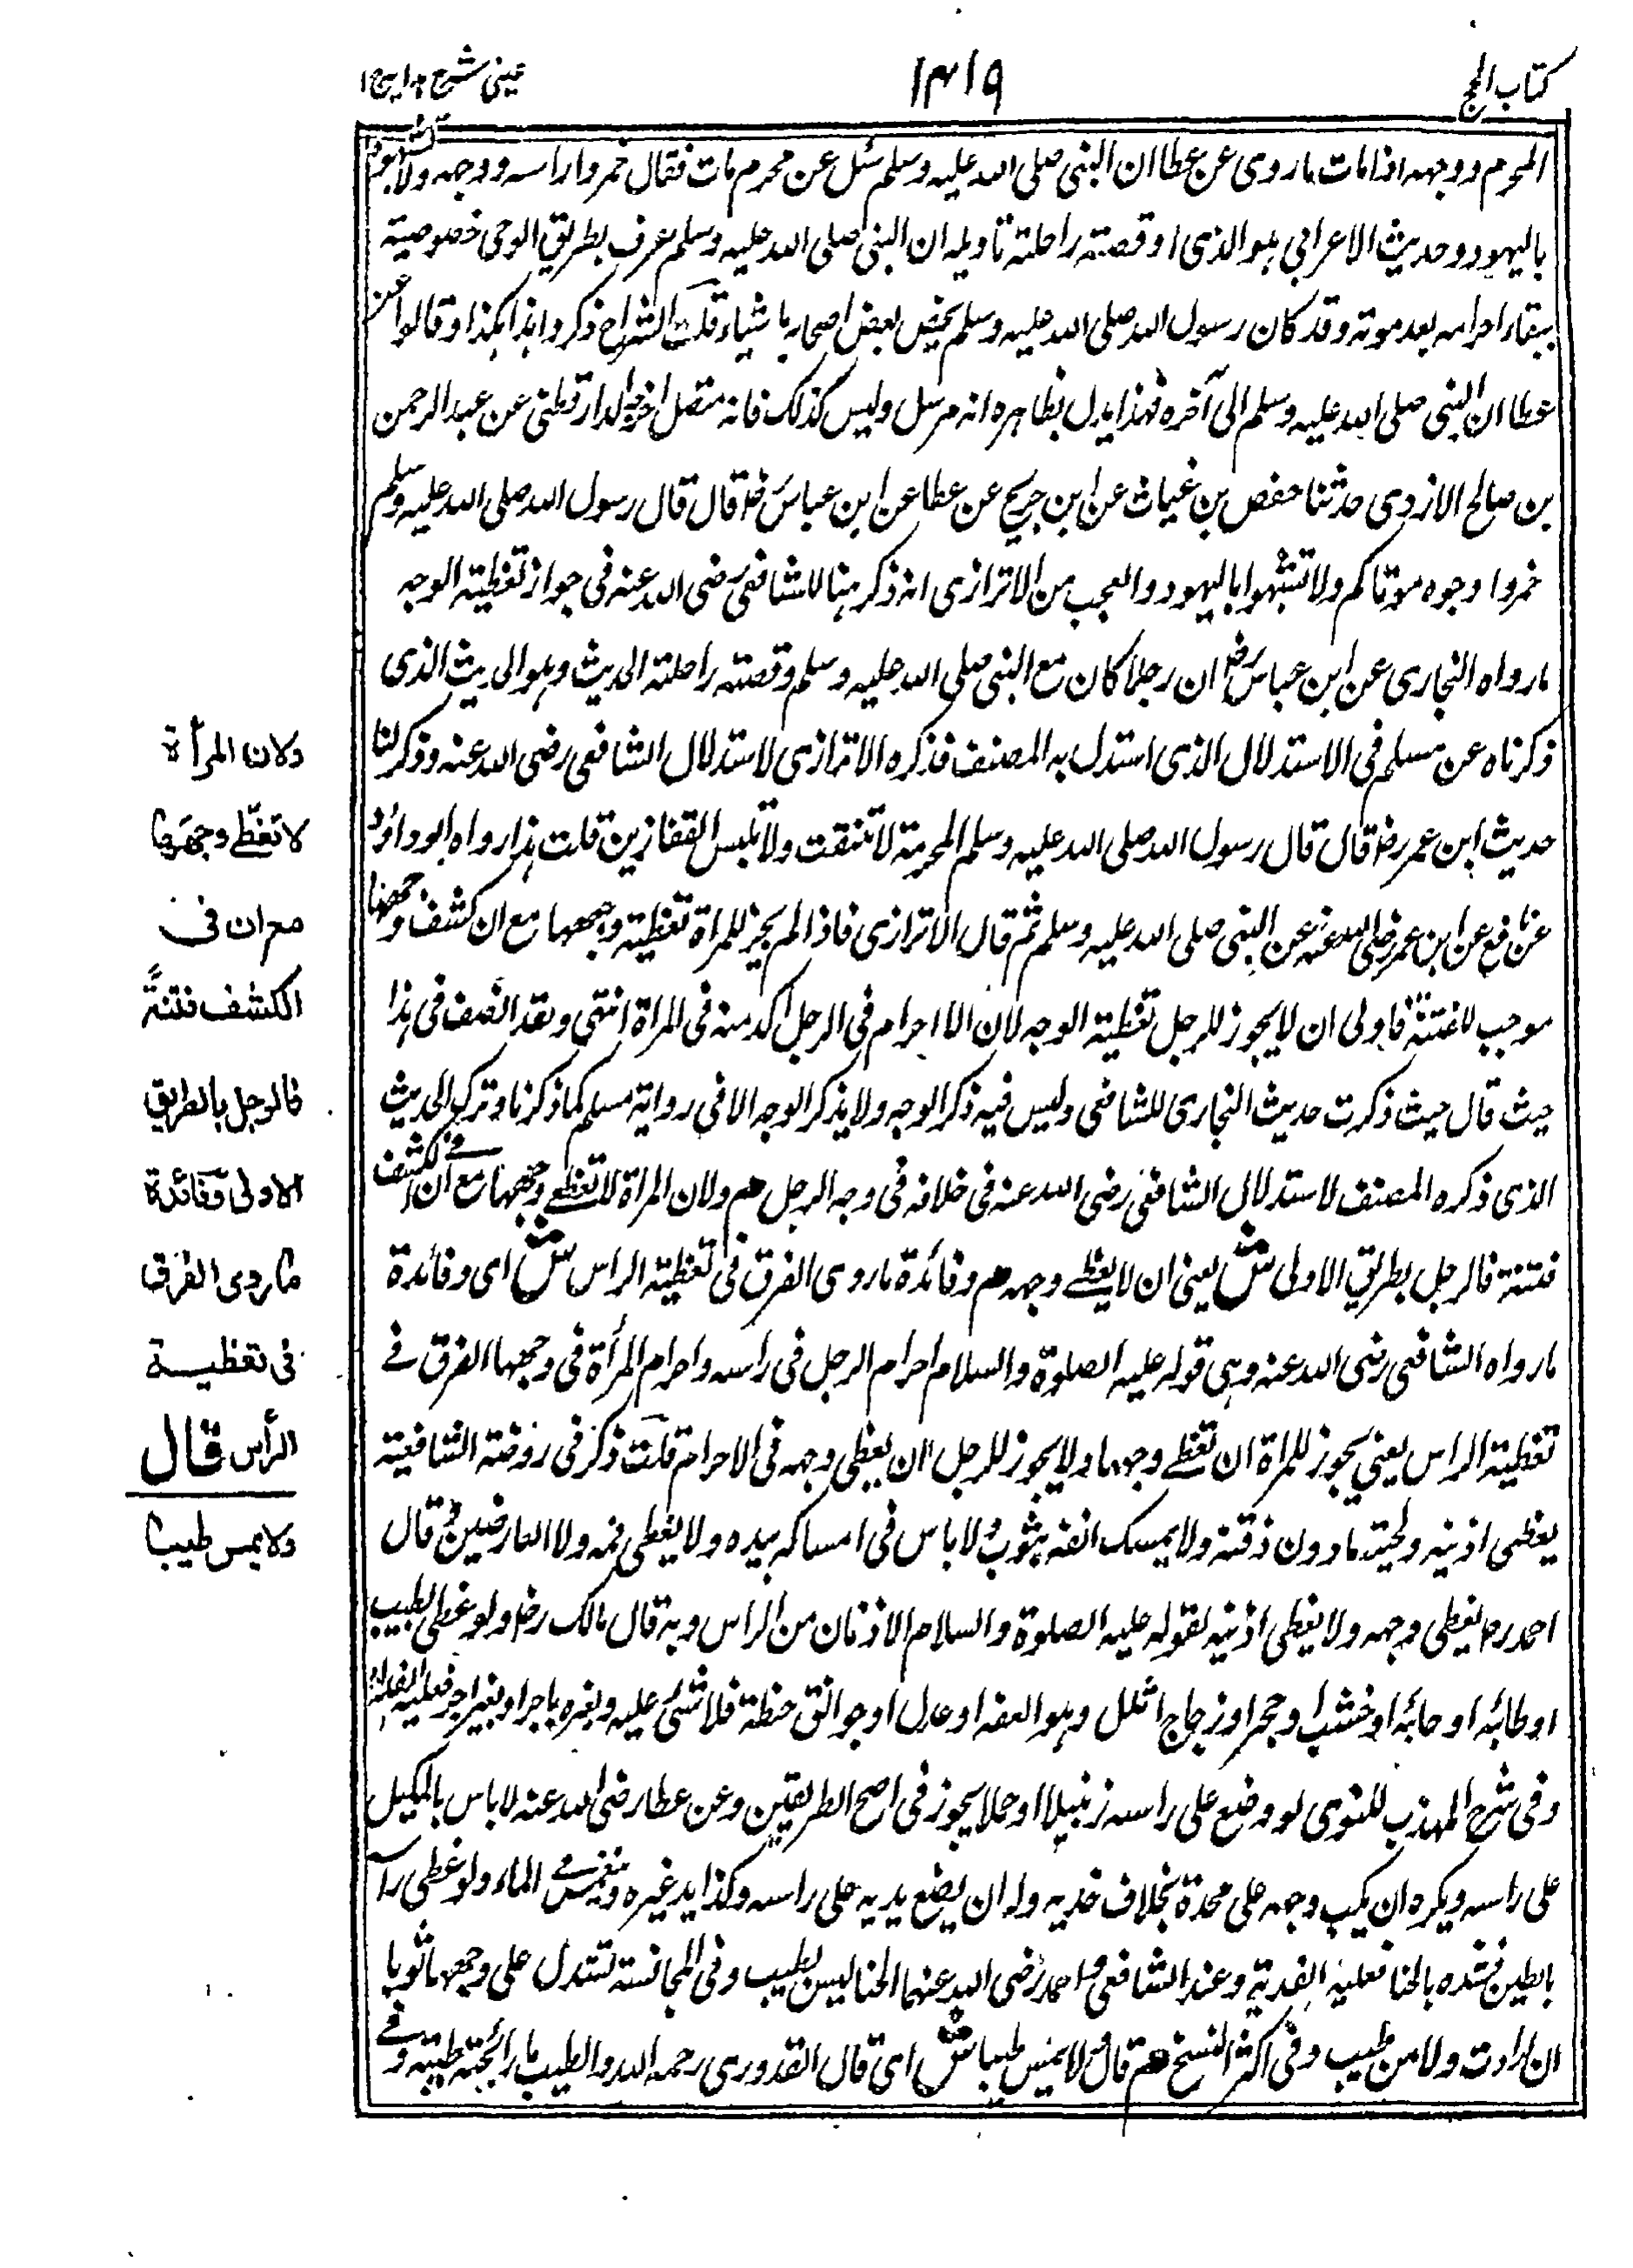 كتاب الحج
١٣١٩
عينى شرح هداية ج ١
المحرم ووجهه اذا مات ما روى عن عطا ان النبى صلى الله عليه وسلم سئل عن محرم مات فقال خمروا راسه ووجهه ولا تشبهوه
باليهود وحديث الاعرابي هو الذى اوقصته راحلته تاويله ان النبى صلى الله عليه وسلم عرف بطريق الوحى خصوصيته
ببقاء احرامه بعد موته وقد كان رسول الله صلى الله عليه وسلم يخص بعض اصحابه باشياء قلت الشراح ذكروا هذا هكذا وقالوا عن
عطا ان النبى صلى الله عليه وسلم الى آخره فهذا يدل بظاهره انه مرسل وليس كذلك فانه متصل اخرجه الدارقطنى عن عبد الرحمن
بن صالح الازدى حدثنا حفص بن غياث عن ابن جريج عن عطا عن ابن عباس رضـ قال قال رسول الله صلى الله عليه وسلم
خمروا وجوه موتاكم ولا تشبهوا باليهود والعجب من الاترازى انه ذكر هنا للشافعى رضى الله عنه فى جواز تغطية الوجه
ما رواه البخارى عن ابن عباس رضـ ان رجلا كان مع النبى صلى الله عليه وسلم وقصته راحلته الحديث وهو الحديث الذى
ذكرناه عن مسلم فى الاستدلال الذى استدل به المصنف فذكره الاترازى لاستدلال الشافعى رضى الله عنه وذكر لنا
حديث ابن عمر رضـ قال قال رسول الله صلى الله عليه وسلم المحرمة لا تنتقب ولا تلبس القفازين قلت هذا رواه ابو داؤد
عن نافع عن ابن عمر رضى الله عنه عن النبى صلى الله عليه وسلم ثم قال الاترازى فاذا لم يجز للمراة تغطية وجهها مع ان كشف وجهها
موجب للفتنة فاولى ان لا يجوز للرجل تغطية الوجه لان الاحرام فى الرجل اكد منه فى المراة انتهى وبعد انصف فى هذا
حيث قال حيث ذكرت حديث البخارى للشافعى وليس فيه ذكر الوجه ولا يذكر الوجه الا فى رواية مسلم كما ذكرنا وترك الحديث
الذى ذكره المصنف لاستدلال الشافعى رضى الله عنه فى خلافه فى وجه الرجل هم ولان المراة لا تغطے وجهها مع ان فے الكشف
فتنة فالرجل بطريق الاولى ش يعنى ان لا يغطے وجهه هم وفائدة ما روى الفرق فى تغطية الراس ش اى وفائدة
ما رواه الشافعى رضى الله عنه وهى قوله عليه الصلوة والسلام احرام الرجل فى راسه واحرام المرأة فى وجهها الفرق فے
تغطية الراس يعنى يجوز للمراة ان تغطے وجهها ولا يجوز للرجل ان يغطى وجهه فى الاحرام قلت ذكر فى روضة الشافعية
يغطى اذنيه ولحيته ما دون ذقنه ولا يمسك انفه بثوب ولا باس فى امساكه بيده ولا يغطى فمه ولا العارضين وقال
احمد رحـ يغطى وجهه ولا يغطى اذنيه لقوله عليه الصلوة والسلام الاذنان من الراس وبه قال مالك رضـ ولو غطى الطيب
وفى شرح المهذب للنووى لو وضع على راسه زنبيلا او حملا يجوز فى اصح الطريقين وعن عطا رضى الله عنه لا باس بالمكيل
على راسه ويكره ان يكب وجهه على مخدة بخلاف خديه وله ان يضع يديه على راسه وكذا يد غيره وينغمس فے الماء ولو غطى را
بالطين فشده بالحنا فعليه الفدية وعند الشافعى واحمد رضى الله عنهما الحنا ليس بطيب وفى المجانسة تستدل على وجهها ثوبا
ان ارادت ولا من طيب وفى اكثر النسخ هم قال ولا يمس طيبا ش اى قال القدورى رحمه الله والطيب ما رائحته طيبة وفے
ولان المرأة
لا تغطّے وجهها
مع ان فى
الكشف فتنةً
فالرجل بالطريق
الاولى وفائدة
ما روى الفرق
فى تغطية
الرأس قال
ولا يمس طيبا